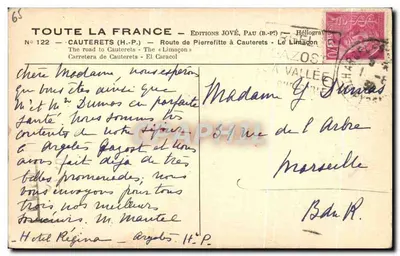 65
TOUTE LA FRANCE — EDITIONS JOVÉ, PAU (B.-P.) Héliogr
No 122 — CAUTERETS (H.-P.) — Route de Pierrefitte à Cauterets - Le Limaçon
The road to Cauterets - The «Limaçon»
Carretera de Cauterets - El Caracol
Chère Madame, nous espérons
que vous êtes ainsi que
Mr et Mme Dumas en parfaite
santé, nous sommes très
contents de notre séjour
à Argelès Gazost et nous
avons fait déjà de très
belles promenades; nous
vous envoyons pour tous
trois nos meilleurs
souvenirs. M. Mantel
Hotel Régina — Argelès. Hte P.
Madame Y Dumas
5 rue de l'Arbre
Marseille
B du R.
AZOST
A VALLÉE